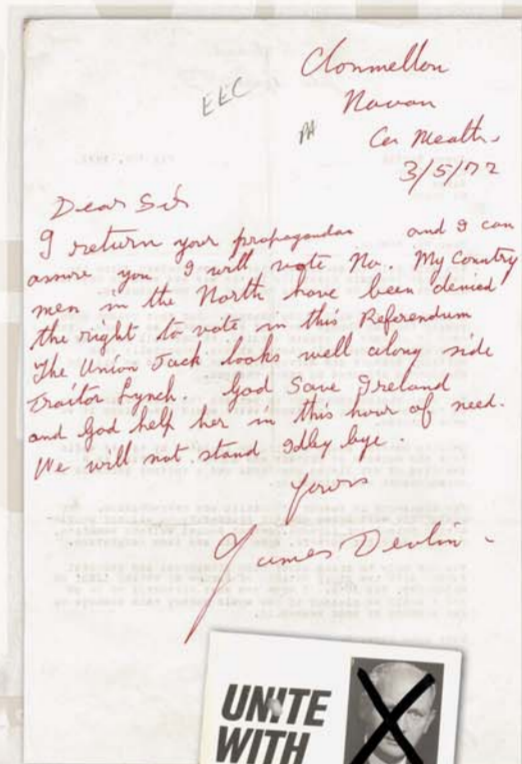 EEC
PA
Clonmellon
Navan
Co Meath.
3/5/72
Dear Sir
I return your propaganda and I can
assure you I will vote No. My Country
men in the North have been denied
the right to vote in this Referendum
The Union Jack looks well along side
Traitor Lynch. God Save Ireland
and God help her in this hour of need.
We will not stand Idley bye.
Yours
James Devlin
UNITE
WITH